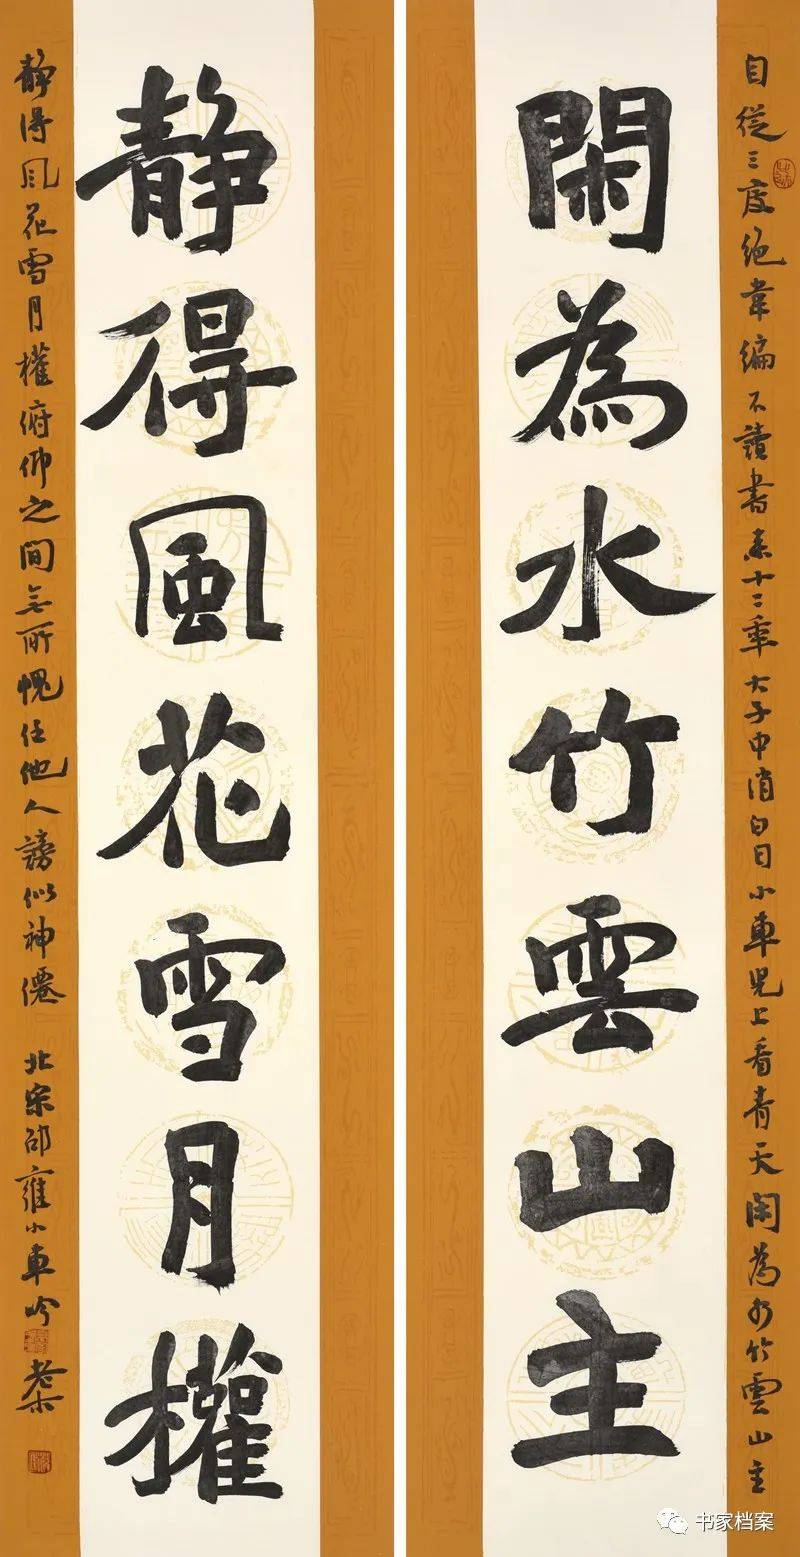 自從三度絕韋編不讀書来十二季大子中消白日小車兒上看青天閑為水竹雲山主
閑為水竹雲山主
静得風花雪月權
静得風花雪月權俯仰之間無所愧任他人謗似神僊 北宋邵雍小車吟
书家档案